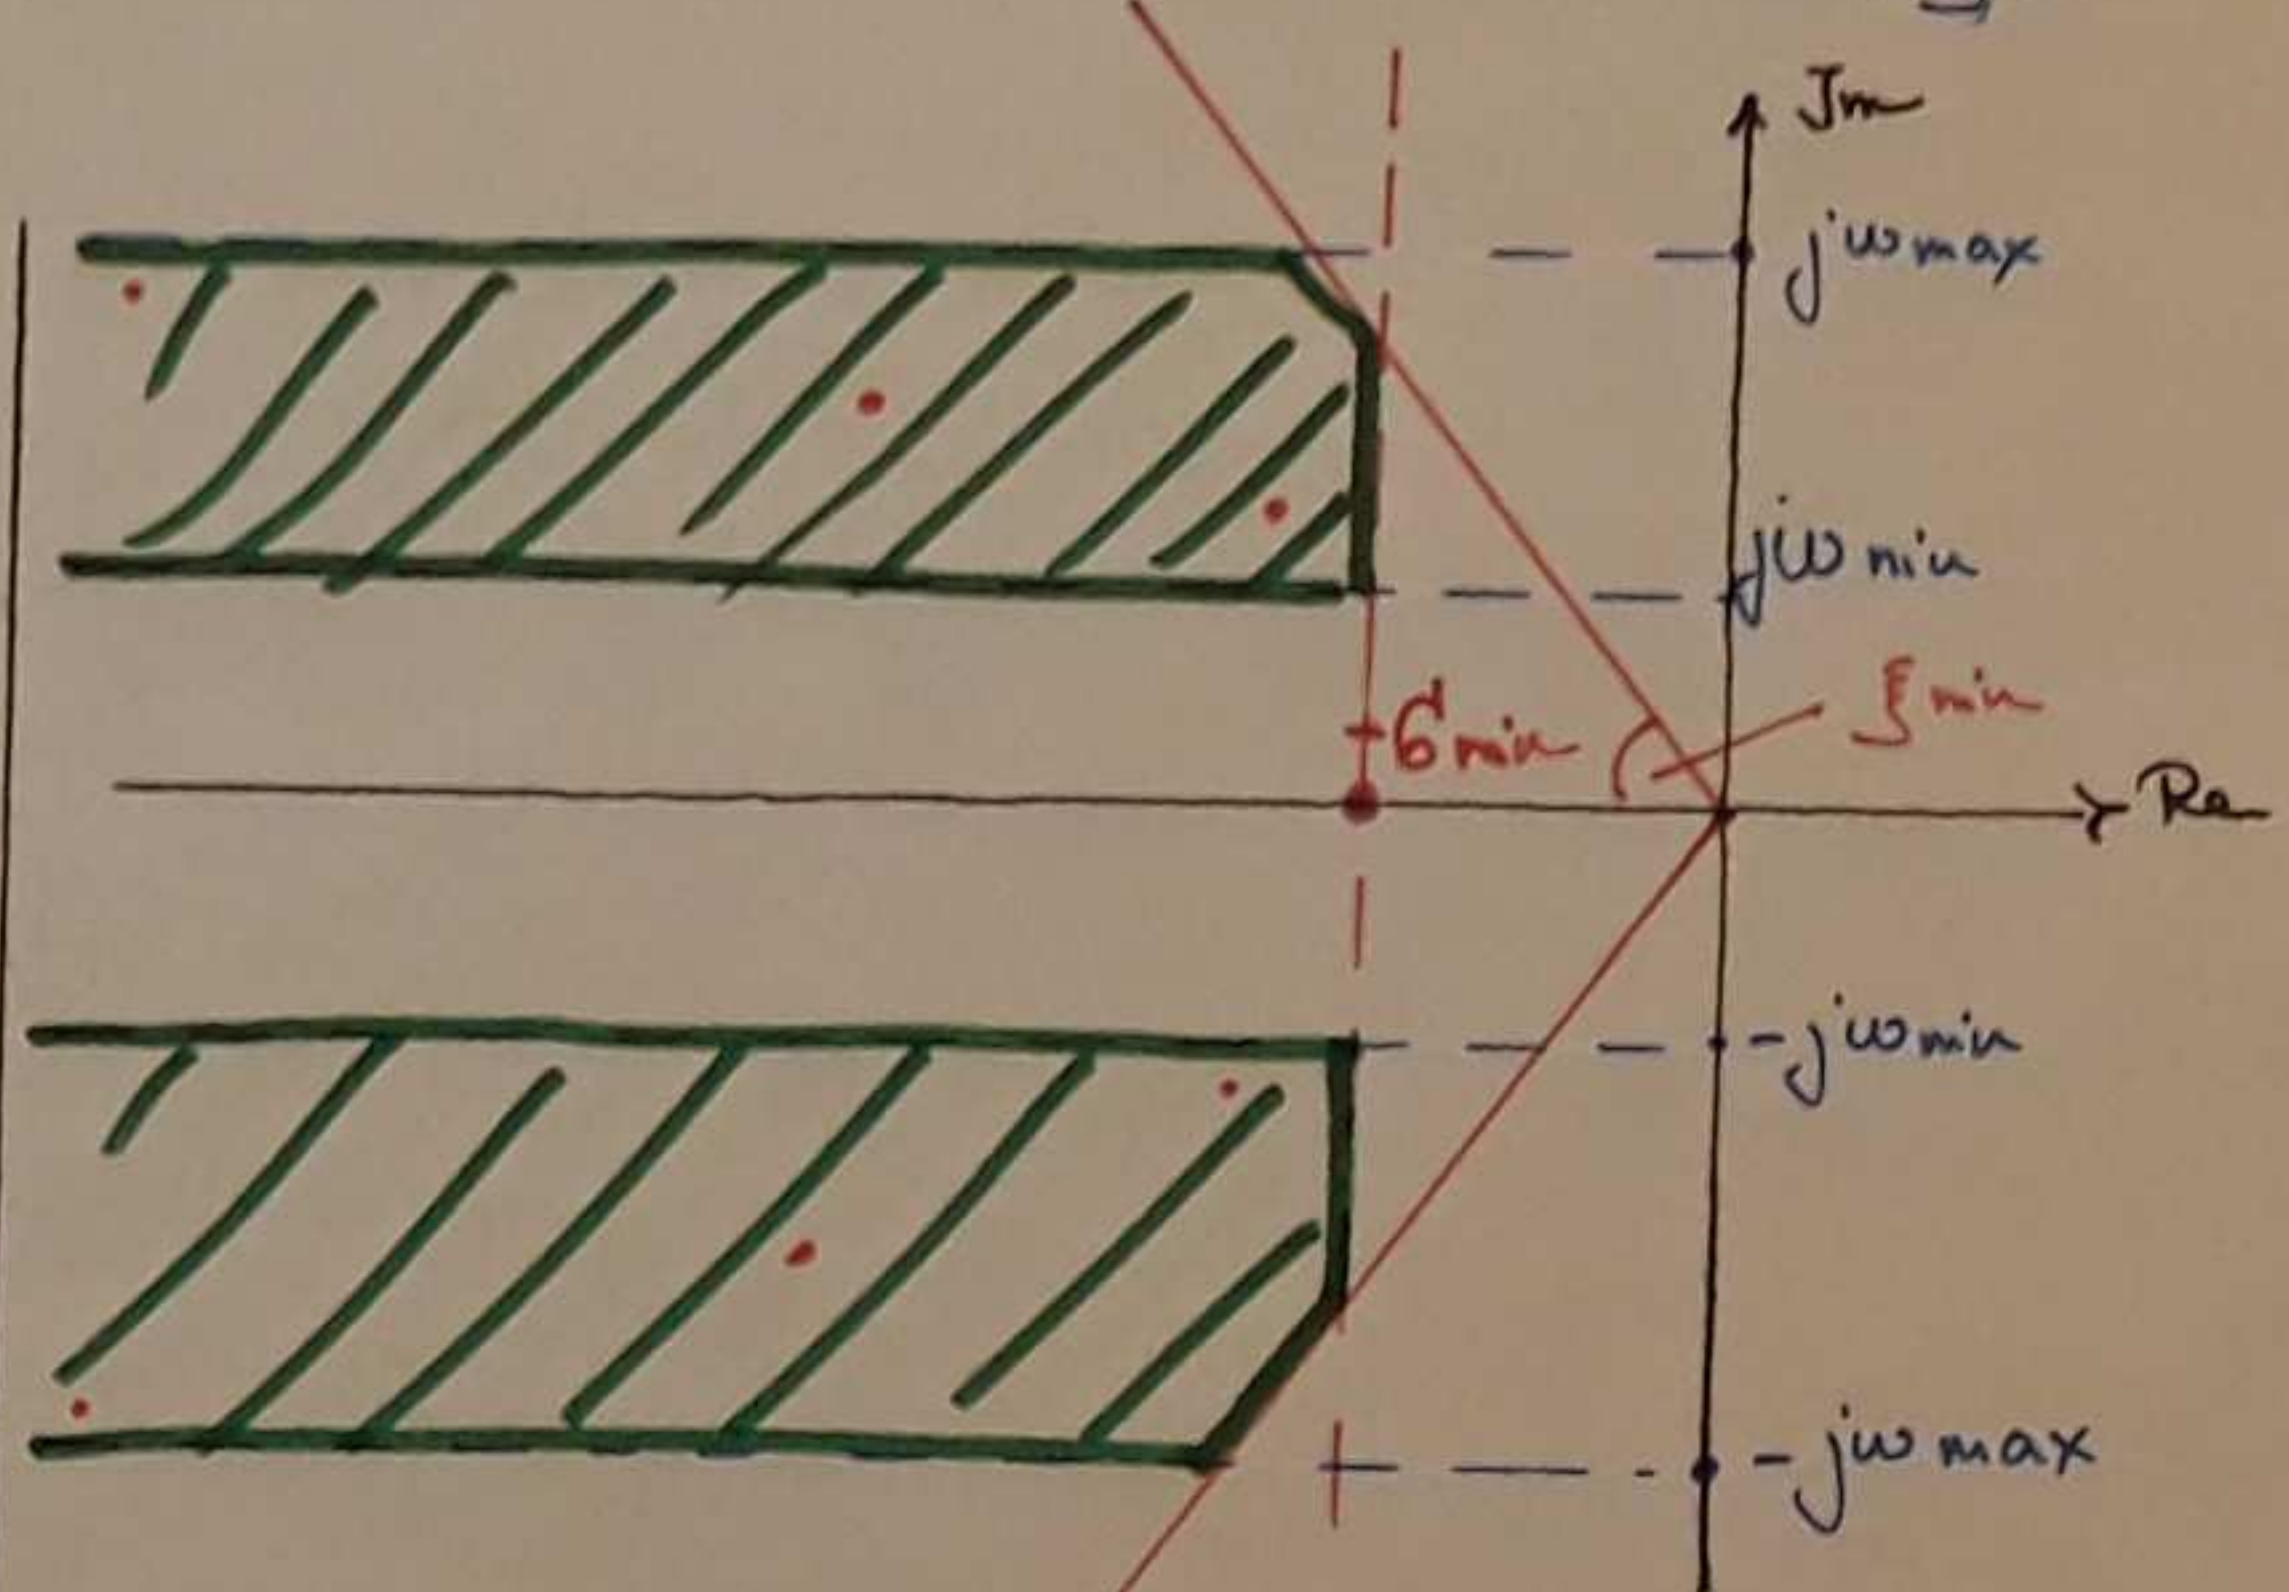 Jm
jωmax
jωmin
σmin
ξmin
Re
-jωmin
-jωmax